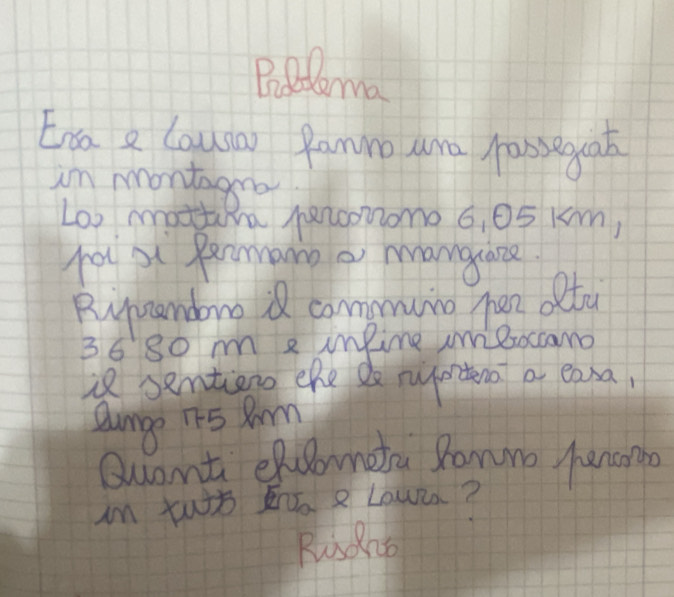 Problema
Era e Laura fanno una passegiata
in montagna.
La mattina percorrono 6,05 Km,
poi si fermano a mangiare.
Riprendono il cammino per altri
3680 m e infine imboccano
il sentiero che le riporterà a casa,
lungo 75 hm
Quanti chilometri hanno percorso
in tutto Era e Laura?
Risolvo